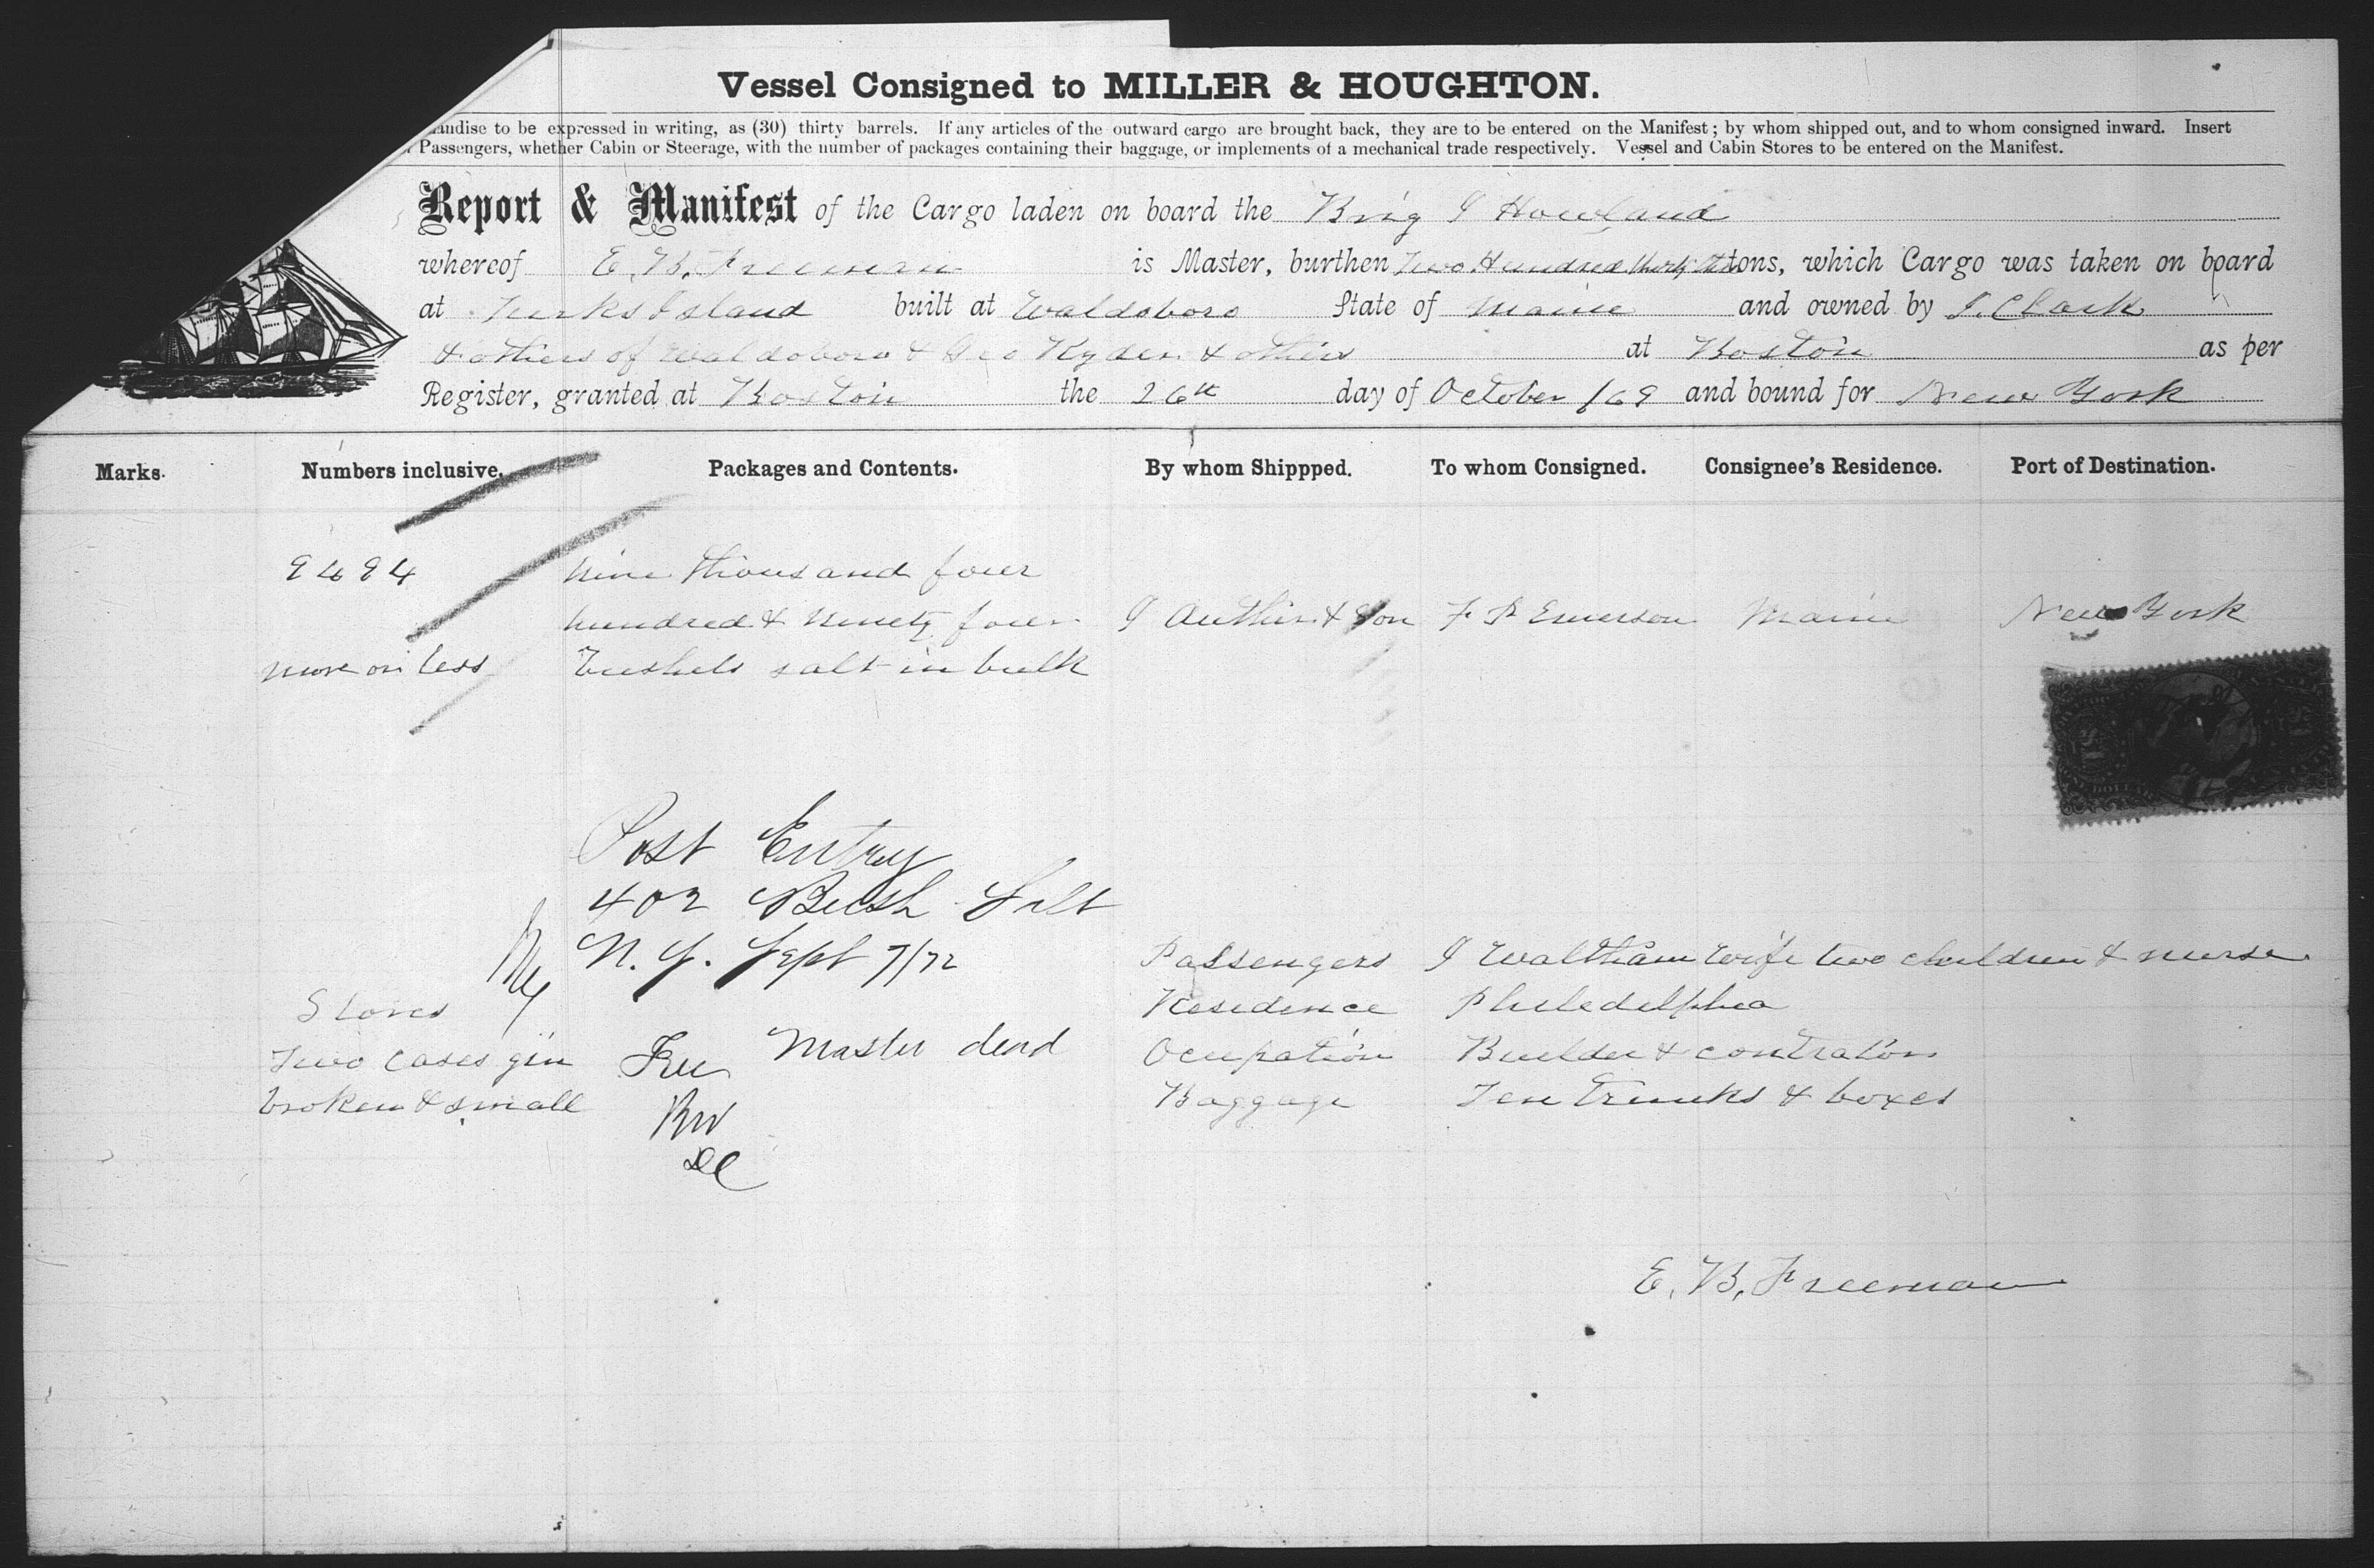 Vessel Consigned to MILLER & HOUGHTON.
to be expressed in writing, as (30) thirty barrels. If any articles of the outward cargo are brought back, they are to be entered on the Manifest; by whom shipped out, and to whom consigned inward. Insert
Passengers, whether Cabin or Steerage, with the number of packages containing their baggage, or implements of a mechanical trade respectively. Vessel and Cabin Stores to be entered on the Manifest.
Report & Manifest of the Cargo laden on board the Brig J Howland
whereof E. B. Freeman is Master, burthen Two Hundred thirty tons, which Cargo was taken on board
at Turks Island built at Waldoboro State of Maine and owned by J. Clark
& others of Waldoboro & Geo Ryder & others at Boston as per
Register, granted at Boston the 26th day of October /69 and bound for New York
Marks. Numbers inclusive. Packages and Contents. By whom Shippped. To whom Consigned. Consignee's Residence. Port of Destination.
9494 nine thousand four
hundred & ninety four J & Son F P Emerson Maine New York
more or less bushels salt in bulk
Post Entry
402 Bush Salt
N. Y. Sept 7/72 Passengers J Waltham wife two children & nurse
Stores Residence Philedelphea
Two cases gin Master dead Ocupation Builder & contrator
broken & small Baggage Ten trunks & boxes
E. B. Freeman